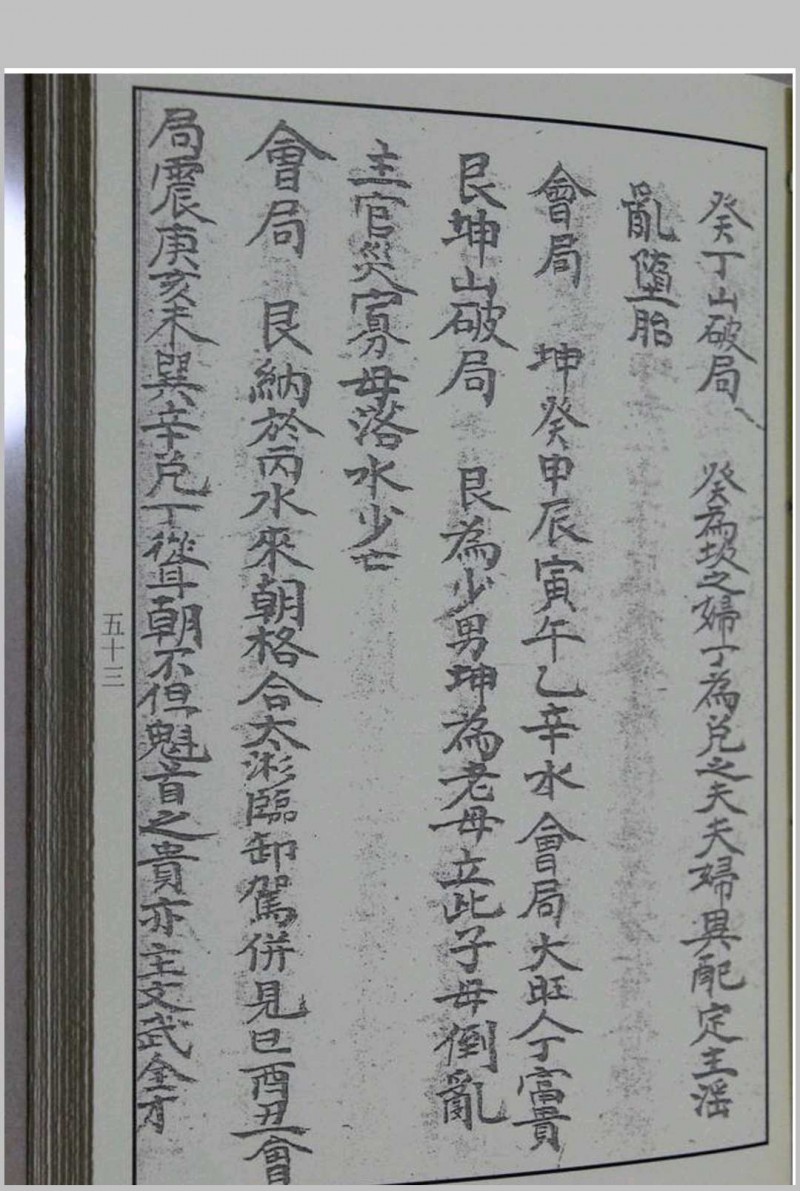 癸丁山破局、 癸為坎之婦丁為兌之夫夫婦異配定主淫
亂墮胎
會局 坤癸申辰寅午乙辛水會局大旺人丁富貴
艮坤山破局 艮為少男坤為老母立此子母倒亂
主官災寡母落水少亡
會局 艮納於丙水來朝格合太微臨卸駕併見巳酉丑會
局震庚亥未巽辛兌丁從耳朝不但魁首之貴亦主文武全才
五十三